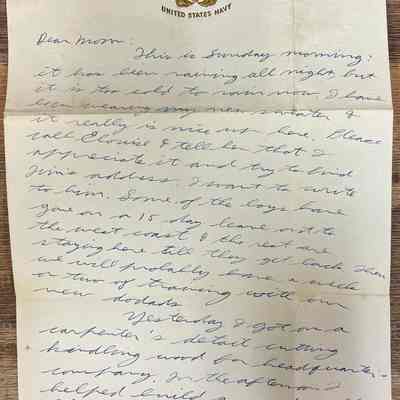 UNITED STATES NAVY
Dear Mom:
This is Sunday morning;
it has been raining all night but
it is too cold to rain now. I have
been wearing my new sweater &
it really is nice up here. Please
call Elouise & tell her that I
appreciate it and try to find
Jim's address. I want to write
to him. Some of the boys have
gone on a 15 day leave out to
the west coast & the rest are
staying here till they get back. Then
we will probably have a week
or two of training with our
new dodads.
Yesterday I got on a
carpenter's detail cutting
handling wood for headquarter's
company. In the afternoon I
helped build